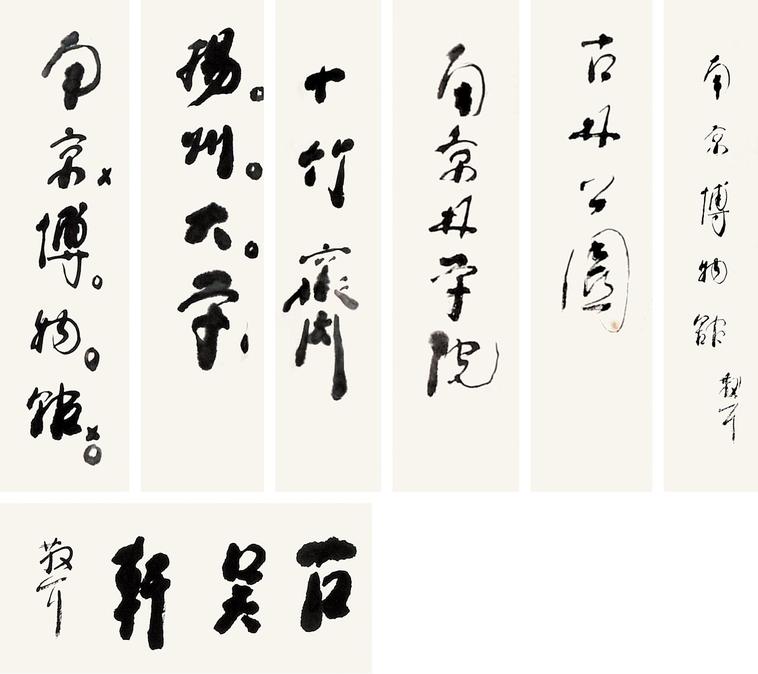 南京博物館
揚州大学
十竹齋
南京林学院
古林公園
南京博物館
散耳
古吴軒
散耳